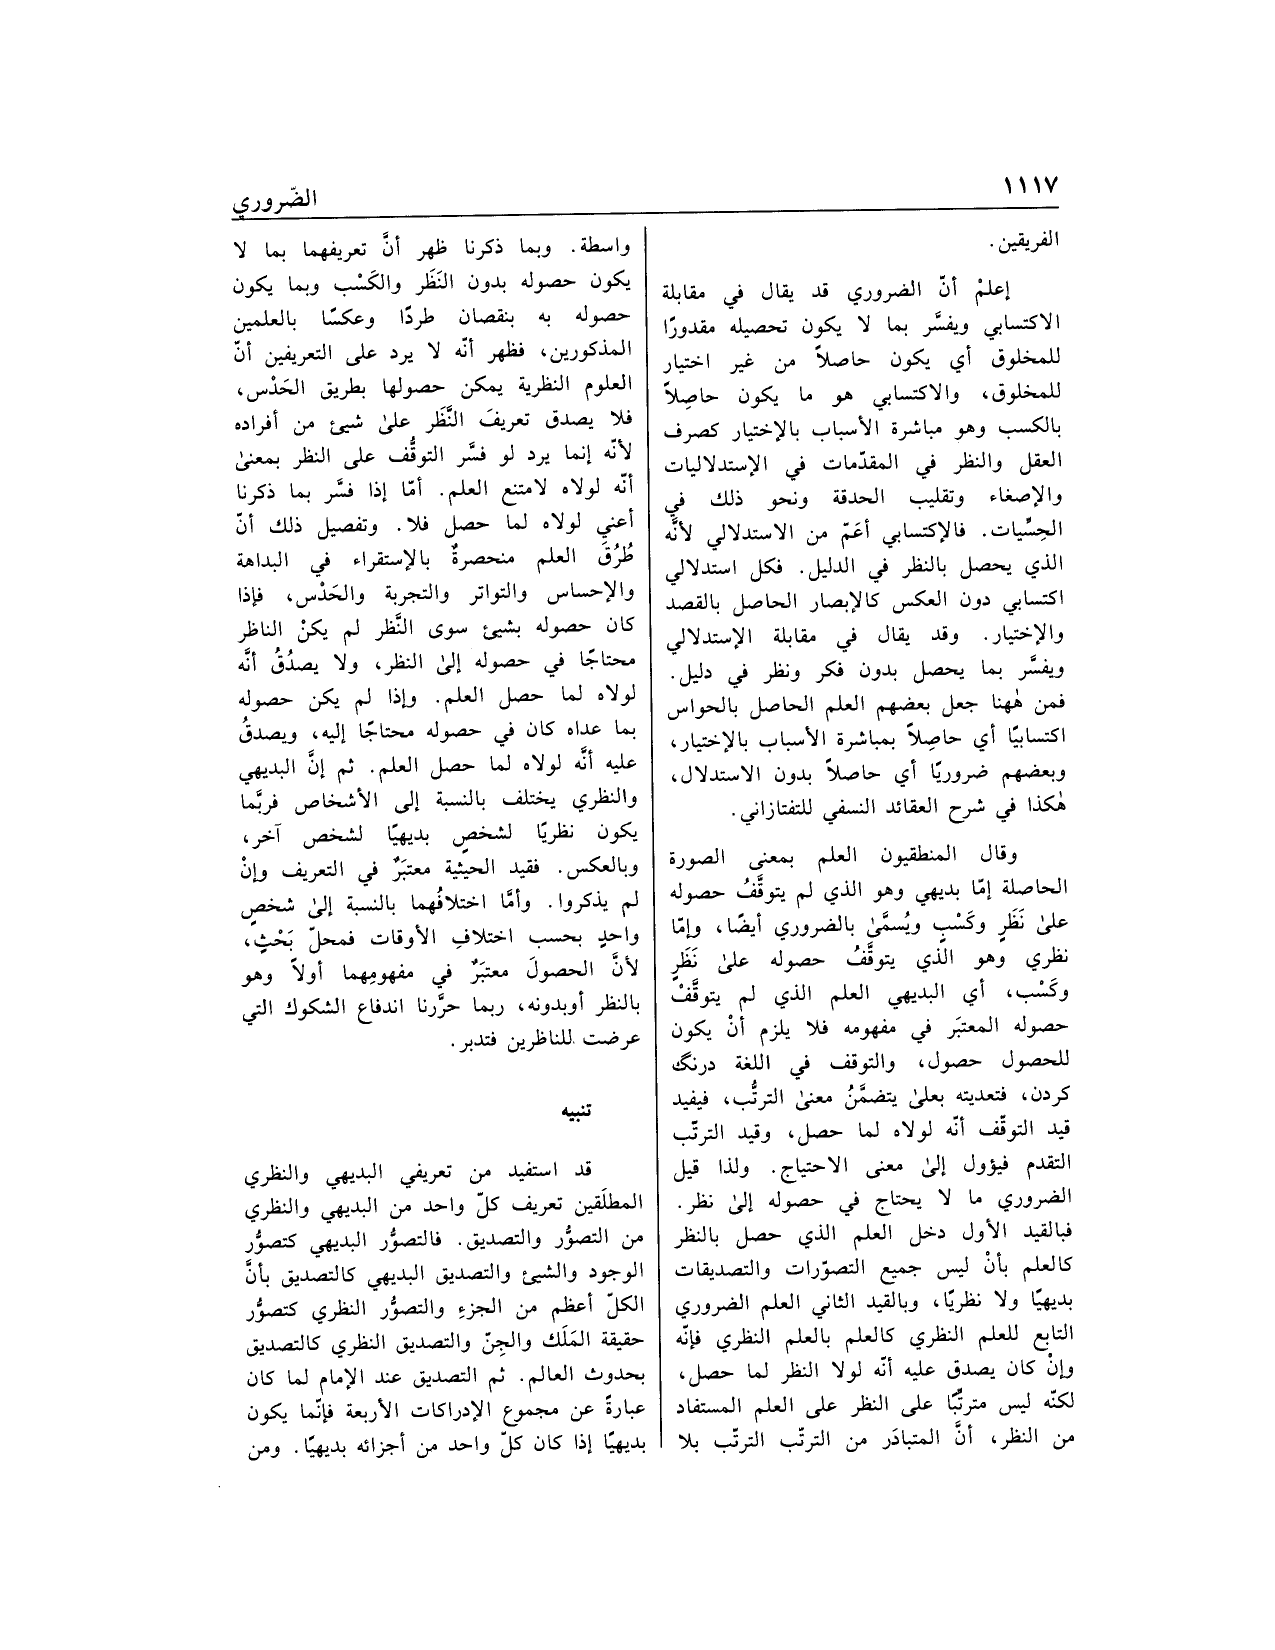 ١١١٧
الضّروري
الفريقين.
إعلمْ أنّ الضروري قد يقال في مقابلة
الاكتسابي ويفسَّر بما لا يكون تحصيله مقدورًا
للمخلوق أي يكون حاصلاً من غير اختيار
للمخلوق، والاكتسابي هو ما يكون حاصِلاً
بالكسب وهو مباشرة الأسباب بالإختيار كصرف
العقل والنظر في المقدّمات في الإستدلاليات
والإصغاء وتقليب الحدقة ونحو ذلك في
الحِسِّيات. فالإكتسابي أعَمّ من الاستدلالي لأنَّه
الذي يحصل بالنظر في الدليل. فكل استدلالي
اكتسابي دون العكس كالإبصار الحاصل بالقصد
والإختيار. وقد يقال في مقابلة الإستدلالي
ويفسَّر بما يحصل بدون فكر ونظر في دليل.
فمن هٰهنا جعل بعضهم العلم الحاصل بالحواس
اكتسابيًا أي حاصِلاً بمباشرة الأسباب بالإختيار،
وبعضهم ضروريًا أي حاصلاً بدون الاستدلال،
هٰكذا في شرح العقائد النسفي للتفتازاني.
وقال المنطقيون العلم بمعنى الصورة
الحاصلة إمّا بديهي وهو الذي لم يتوقَّفُ حصوله
علىٰ نَظَرٍ وكَسْبٍ ويُسمَّىٰ بالضروري أيضًا، وإمّا
نظري وهو الذي يتوقَّفُ حصوله علىٰ نَظَرٍ
وكَسْب، أي البديهي العلم الذي لم يتوقَّفْ
حصوله المعتبَر في مفهومه فلا يلزم أنْ يكون
للحصول حصول، والتوقف في اللغة درنگ
كردن، فتعديته بعلىٰ يتضمَّنُ معنىٰ الترتُّب، فيفيد
قيد التوقّف أنّه لولاه لما حصل، وقيد الترتّب
التقدم فيؤول إلىٰ معنى الاحتياج. ولذا قيل
الضروري ما لا يحتاج في حصوله إلىٰ نظر.
فبالقيد الأول دخل العلم الذي حصل بالنظر
كالعلم بأنْ ليس جميع التصوّرات والتصديقات
بديهيًا ولا نظريًا، وبالقيد الثاني العلم الضروري
التابع للعلم النظري كالعلم بالعلم النظري فإنّه
وإنْ كان يصدق عليه أنّه لولا النظر لما حصل،
لكنّه ليس مترتّبًا على النظر على العلم المستفاد
من النظر، أنَّ المتبادَر من الترتّب الترتّب بلا
واسطة. وبما ذكرنا ظهر أنَّ تعريفهما بما لا
يكون حصوله بدون النَظَر والكَسْب وبما يكون
حصوله به بنقصان طردًا وعكسًا بالعلمين
المذكورين، فظهر أنّه لا يرد على التعريفين أنّ
العلوم النظرية يمكن حصولها بطريق الحَدْس،
فلا يصدق تعريفَ النَّظَر علىٰ شيئ من أفراده
لأنّه إنما يرد لو فسَّر التوقُّف على النظر بمعنىٰ
أنّه لولاه لامتنع العلم. أمّا إذا فسَّر بما ذكرنا
أعني لولاه لما حصل فلا. وتفصيل ذلك أنّ
طُرُقَ العلم منحصرةٌ بالإستقراء في البداهة
والإحساس والتواتر والتجربة والحَدْس، فإذا
كان حصوله بشيئ سوى النَّظر لم يكنْ الناظر
محتاجًا في حصوله إلىٰ النظر، ولا يصدُقُ أنَّه
لولاه لما حصل العلم. وإذا لم يكن حصوله
بما عداه كان في حصوله محتاجًا إليه، ويصدقُ
عليه أنَّه لولاه لما حصل العلم. ثم إنَّ البديهي
والنظري يختلف بالنسبة إلى الأشخاص فربَّما
يكون نظريًا لشخصٍ بديهيًا لشخص آخر،
وبالعكس. فقيد الحيثية معتبَرٌ في التعريف وإنْ
لم يذكروا. وأمَّا اختلافُهما بالنسبة إلىٰ شخصٍ
واحدٍ بحسب اختلافِ الأوقات فمحلّ بَحْثٍ،
لأنَّ الحصولَ معتبَرٌ في مفهومِهما أولاً وهو
بالنظر أوبدونه، ربما حرَّرنا اندفاع الشكوك التي
عرضت للناظرين فتدبر.
تنبيه
قد استفيد من تعريفي البديهي والنظري
المطلَقين تعريف كلّ واحد من البديهي والنظري
من التصوُّر والتصديق. فالتصوُّر البديهي كتصوُّر
الوجود والشيئ والتصديق البديهي كالتصديق بأنَّ
الكلّ أعظم من الجزءِ والتصوُّر النظري كتصوُّر
حقيقة المَلَك والجِنّ والتصديق النظري كالتصديق
بحدوث العالم. ثم التصديق عند الإمام لما كان
عبارةً عن مجموع الإدراكات الأربعة فإنّما يكون
بديهيًا إذا كان كلّ واحد من أجزائه بديهيًا. ومن